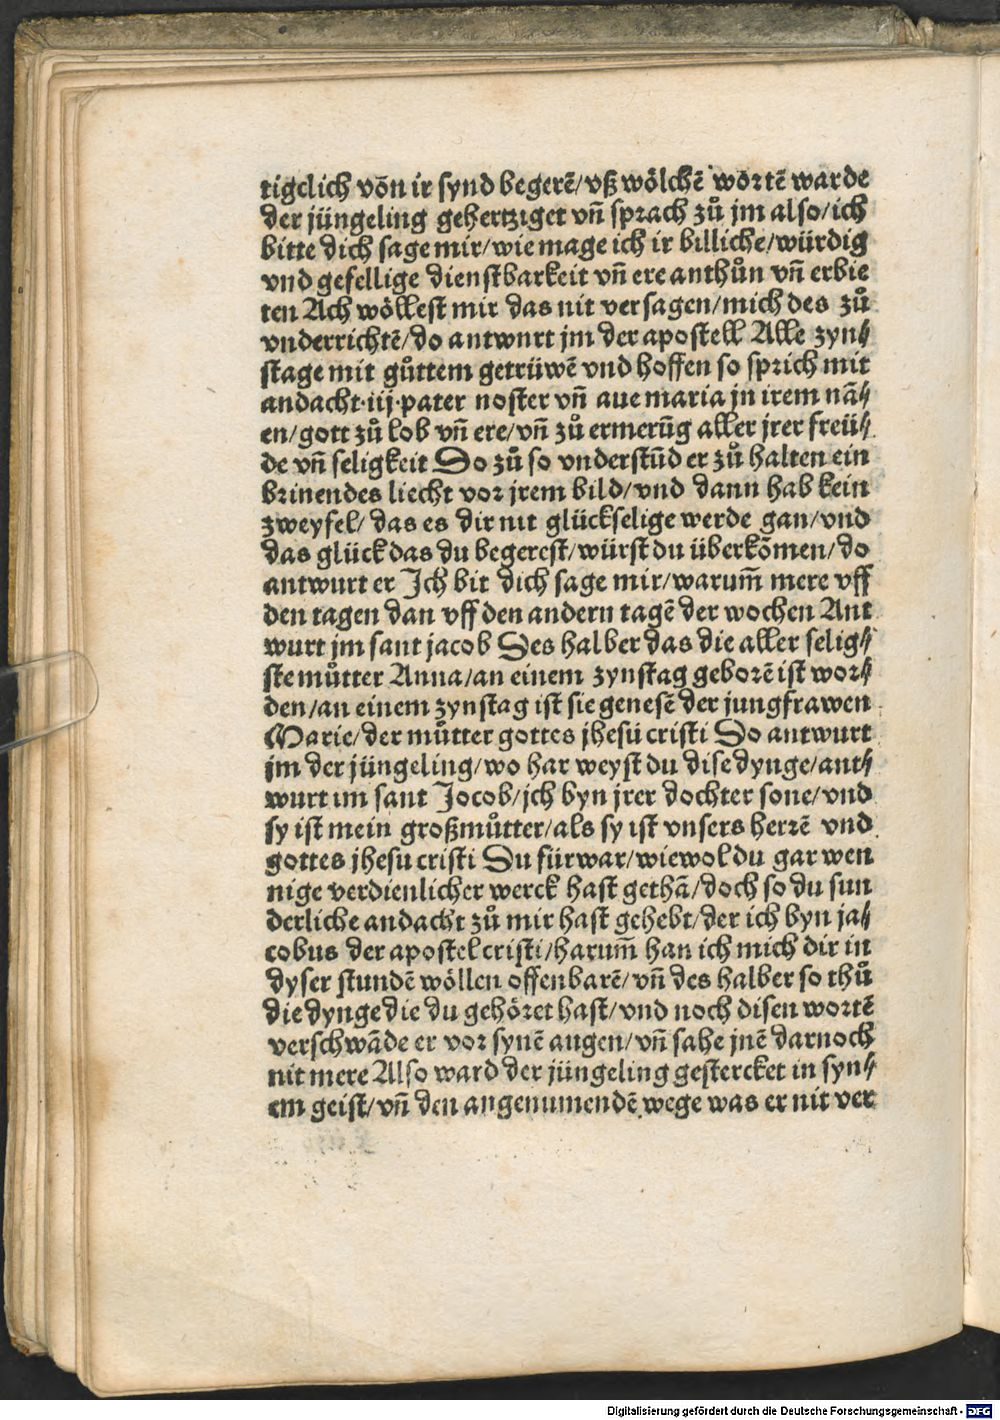 tigclich võn ir synd begerẽ/vß wölchẽ wortẽ warde
der jüngeling gehertziget vñ sprach zů jm also/ich
bitte dich sage mir/wie mage ich ir billiche/würdig
vnd gefellige dienstbarkeit vñ ere anthůn vñ erbie
ten Ach wöllest mir das nit versagen/mich des zů
vnderrichtẽ/do antwurt jm der apostell Alle zyn⸗
stage mit gůttem getrüwẽ vnd hoffen so sprich mit
andacht·iij·pater noster vñ aue maria jn irem nã⸗
en/gott zů lob vñ ere/vñ zů ermerũg aller jrer freü⸗
de vñ seligkeit Do zů so vnderstũd er zů halten ein
brinendes liecht vor jrem bild/vnd dann hab kein
zweyfel/das es dir nit glückselige werde gan/vnd
das glück das du begerest/würst du überkõmen/do
antwurt er Jch bit dich sage mir/warum̃ mere vff
den tagen dan vff den andern tagẽ der wochen Ant
wurt jm sant jacob Des halber das die aller selig⸗
ste můtter Anna/an einem zynstag geborẽ ist wor⸗
den/an einem zynstag ist sie genesẽ der jungfrawen
Marie/der můtter gottes jhesü cristi Do antwurt
jm der jüngeling/wo har weyst du dise dynge/ant⸗
wurt im sant Jocob/jch byn jrer dochter sone/vnd
sy ist mein großmůtter/als sy ist vnsers herrẽ vnd
gottes jhesu cristi Du fürwar/wiewol du gar wen
nige verdienlicher werck hast gethã/doch so du sun
derliche andacht zů mir hast gehebt/der ich byn ja⸗
cobus der apostel cristi/harum̃ han ich mich dir in
dyser stundẽ wöllen offenbarẽ/vñ des halber so thů
die dynge die du gehöret hast/vnd noch disen wortẽ
verschwãde er vor synẽ augen/vñ sahe jnẽ darnoch
nit mere Also ward der jüngeling gestercket in syn⸗
em geist/vñ den angenumendẽ wege was er nit ver
Digitalisierung gefördert durch die Deutsche Forschungsgemeinschaft - DFG